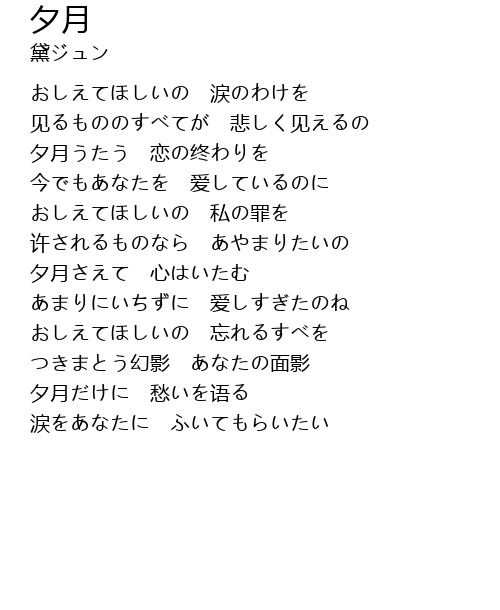 夕月
黛ジュン
おしえてほしいの　涙のわけを
见るもののすべてが　悲しく见えるの
夕月うたう　恋の终わりを
今でもあなたを　爱しているのに
おしえてほしいの　私の罪を
许されるものなら　あやまりたいの
夕月さえて　心はいたむ
あまりにいちずに　爱しすぎたのね
おしえてほしいの　忘れるすべを
つきまとう幻影　あなたの面影
夕月だけに　愁いを语る
涙をあなたに　ふいてもらいたい